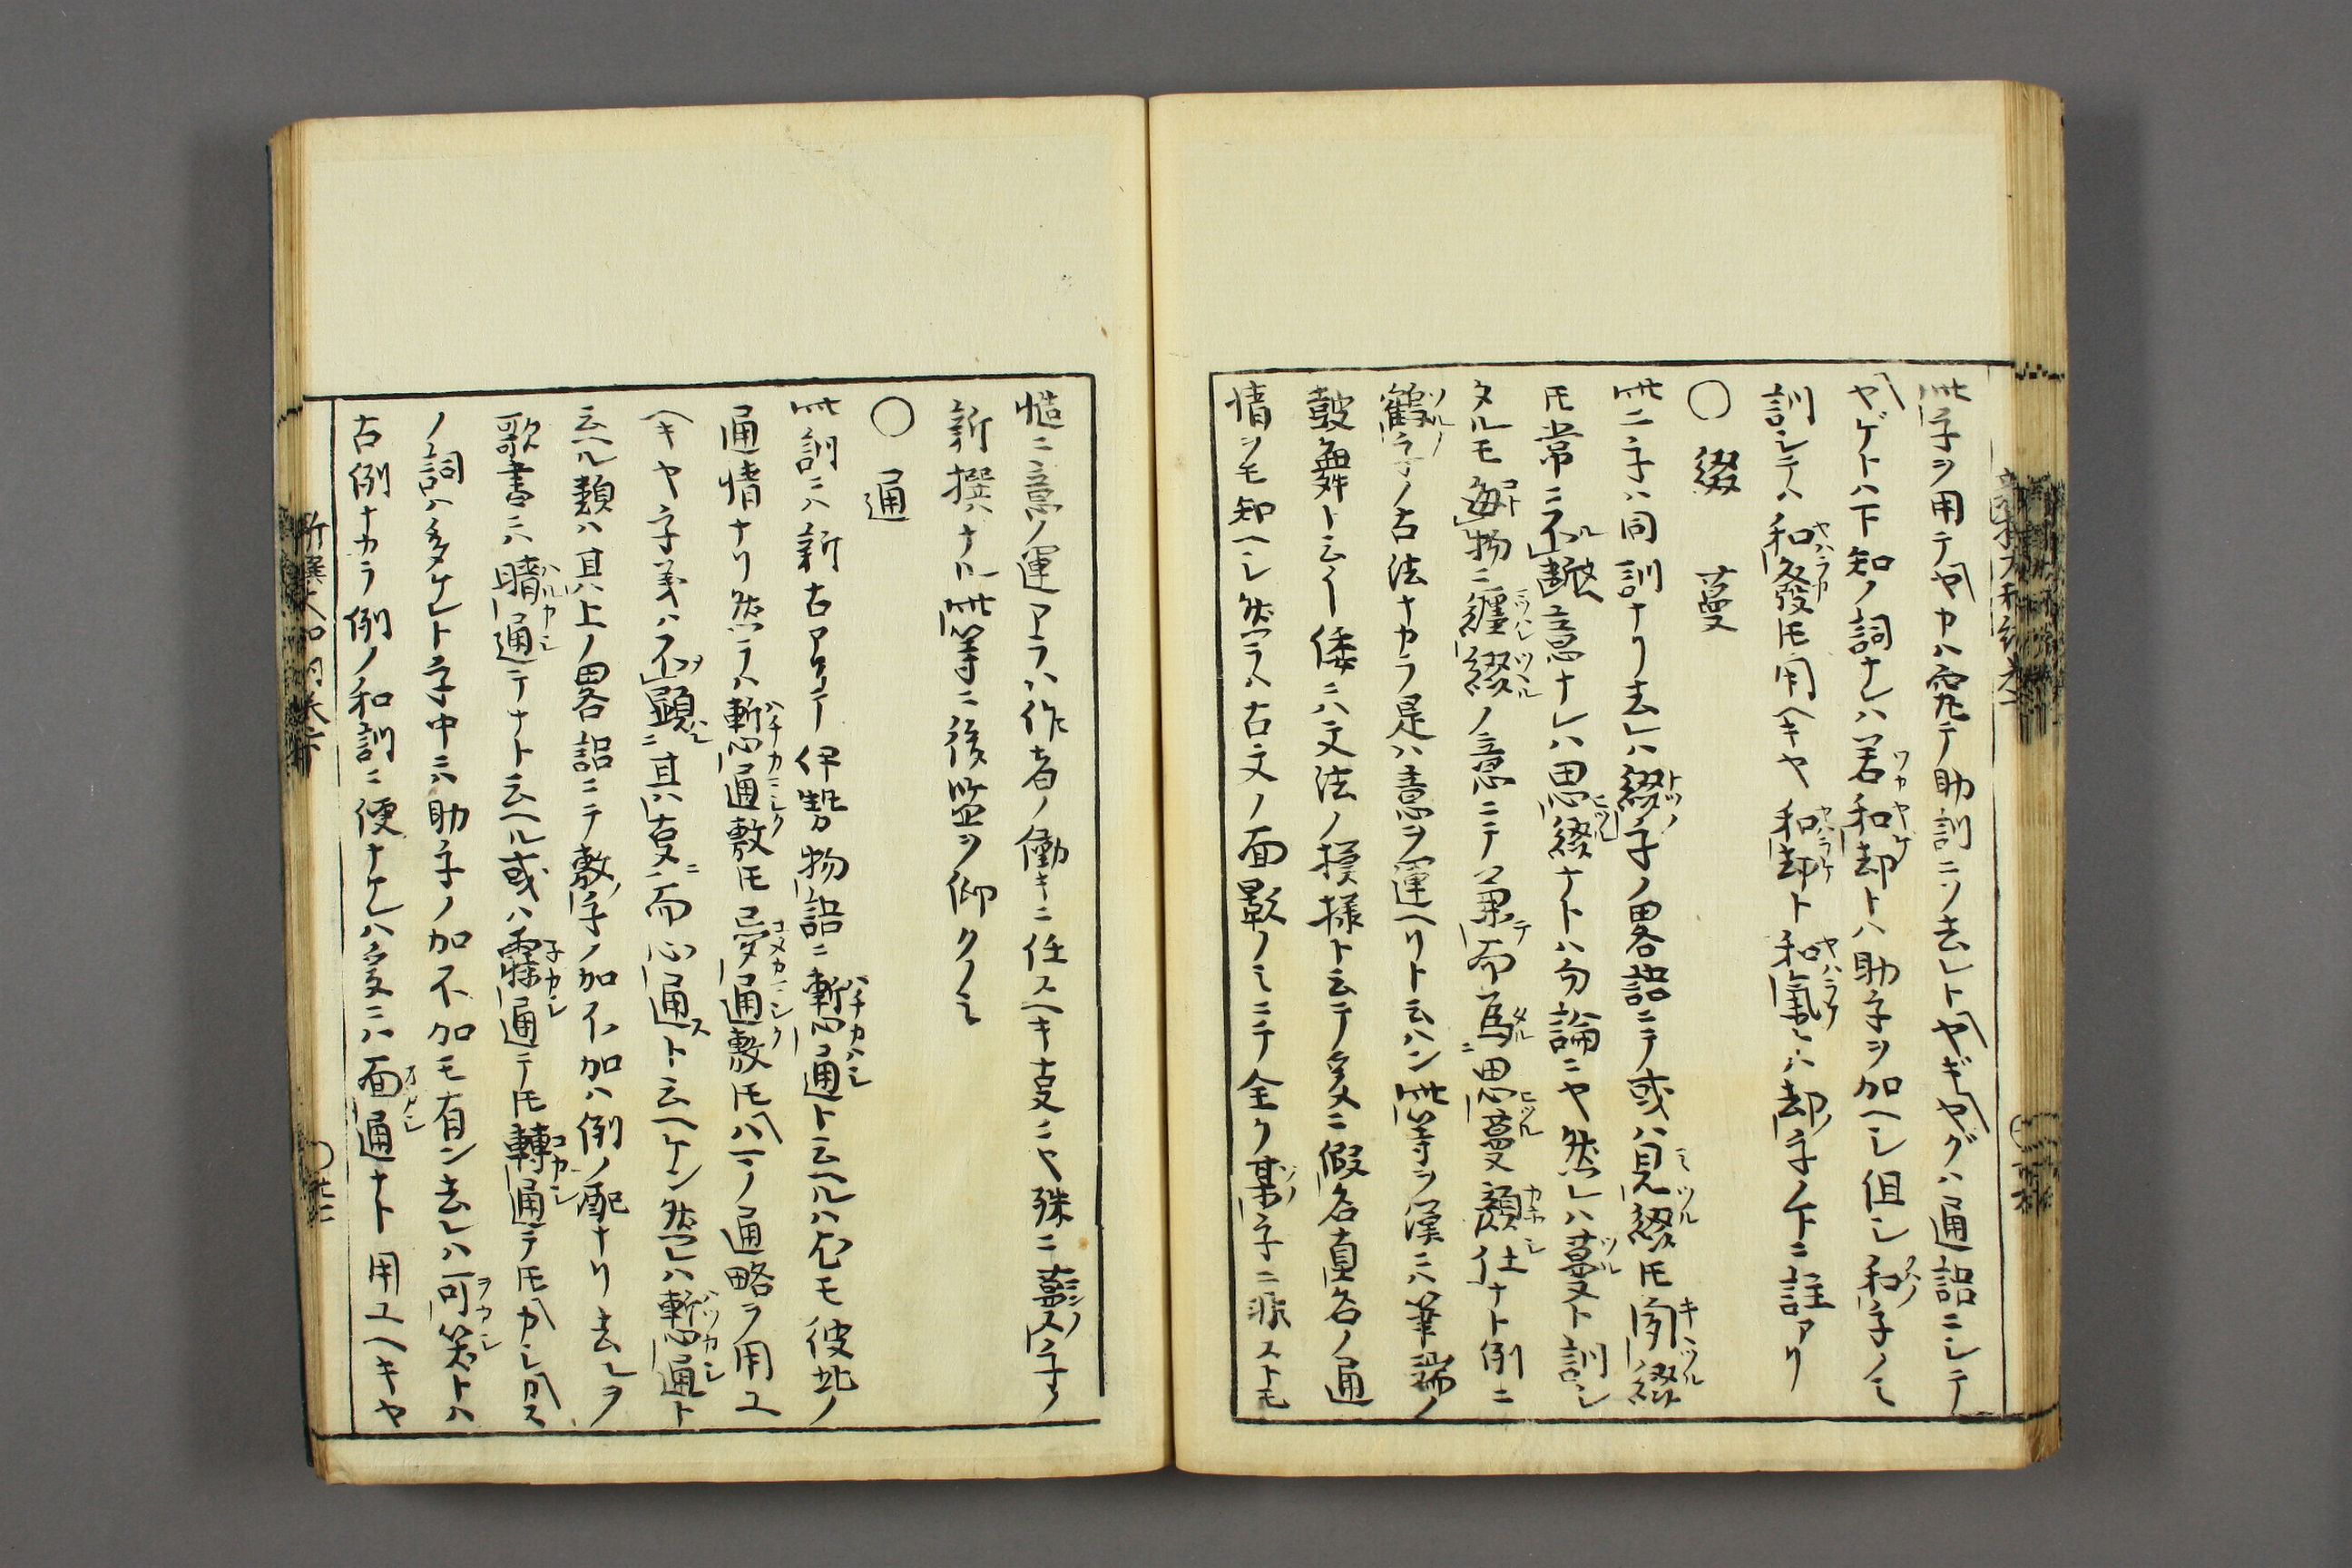 此字ヲ用テヤカハ究テ助訓ニソ去レトヤギヤグハ通語ニシテ
ヤゲトハ下知ノ詞ナレハ若和却トハ助字ヲ加ヘシ但シ和字ノミ
訓シテハ和發トモ用ヘキヤ和却ト和氣トハ却字ノ下ニ註アリ
○綴 蔓
此二字ハ同訓ナリ去レハ綴字ノ畧語ニテ或ハ見綴トモ聞綴
トモ常ニ不斷意ナレハ思綴ナトハ勿論ニヤ然レハ蔓ト訓シ
タルモ毎物ニ纏綴ノ意ニテ兼而為思蔓顔仕ナト例ニ
鶴字ノ古法ナカラ是ハ意ヲ運ヘリト云ハン此等ヲ漢ニハ筆端ノ
鼓舞ト云イ倭ニハ文法ノ模様ト云テ爰ニ假名真名ノ通
情ヲモ知ヘシ然ラハ古文ノ面影ノミニテ全ク某字ニ非ストモ
慥ニ意ノ運アラハ作者ノ働キニ任スヘキ㕝ニヤ殊ニ字ノ
新撰ナル此等ニ後監ヲ仰クノミ
○通
此訓ニハ新古アリテ伊勢物語ニ慙通ト云ヘルハ尤モ彼此ノ
通情ナリ然ラハ慙通敷トモ忌通敷トモハ一ノ通略ヲ用ユ
ヘキヤ字義ハ不顕ニ其㕝而心通ト云ヘケン然レハ慙通ト
云ヘル類ハ其上ノ畧語ニテ敷字ノ加不加ハ例ノ配ナリ去レヲ
歌書ニハ晴通テナト云ヘル或ハ霖通テトモ轉通テトモカシカス
ノ詞ハ多ケレト字中ニハ助字ノ加不加モ有ン去レハ可笑トハ
古例ナカラ例ノ和訓ニ便ナケレハ爰ニハ面通ナト用ユヘキヤ